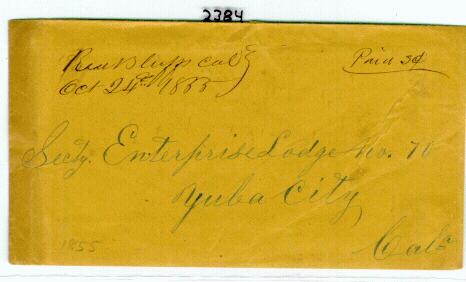 2384
Red Bluffs Cal
Oct 24th 1855
Paid 3¢
Secty. Enterprise Lodge No. 70
Yuba City
Cala
1855